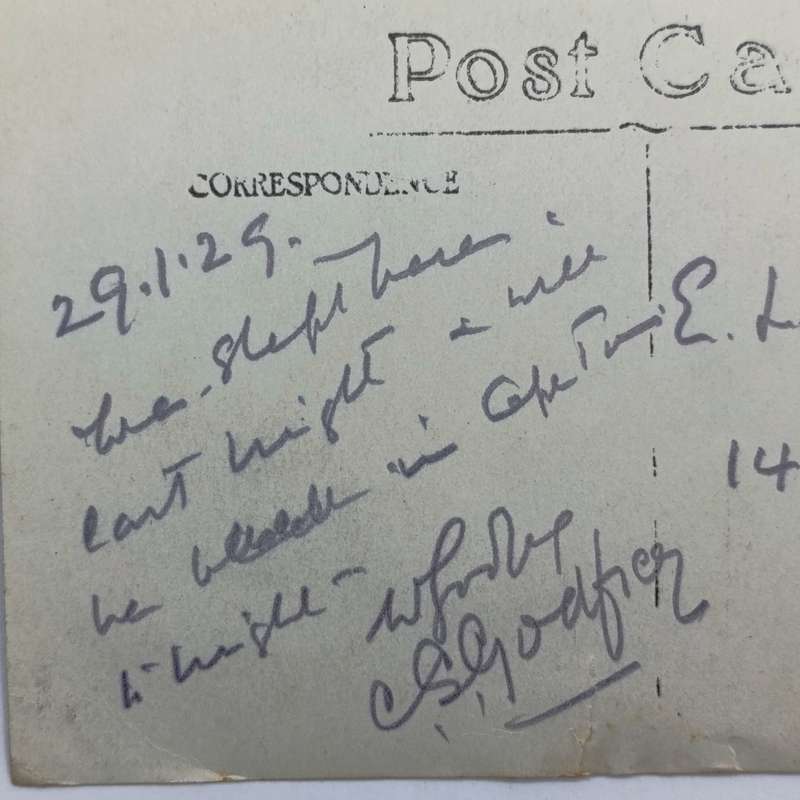 Post Ca
CORRESPONDENCE
29.1.29.
slept here
last night & will
be in Cape Town
to night -
C. S. Godfrey
E. L
14